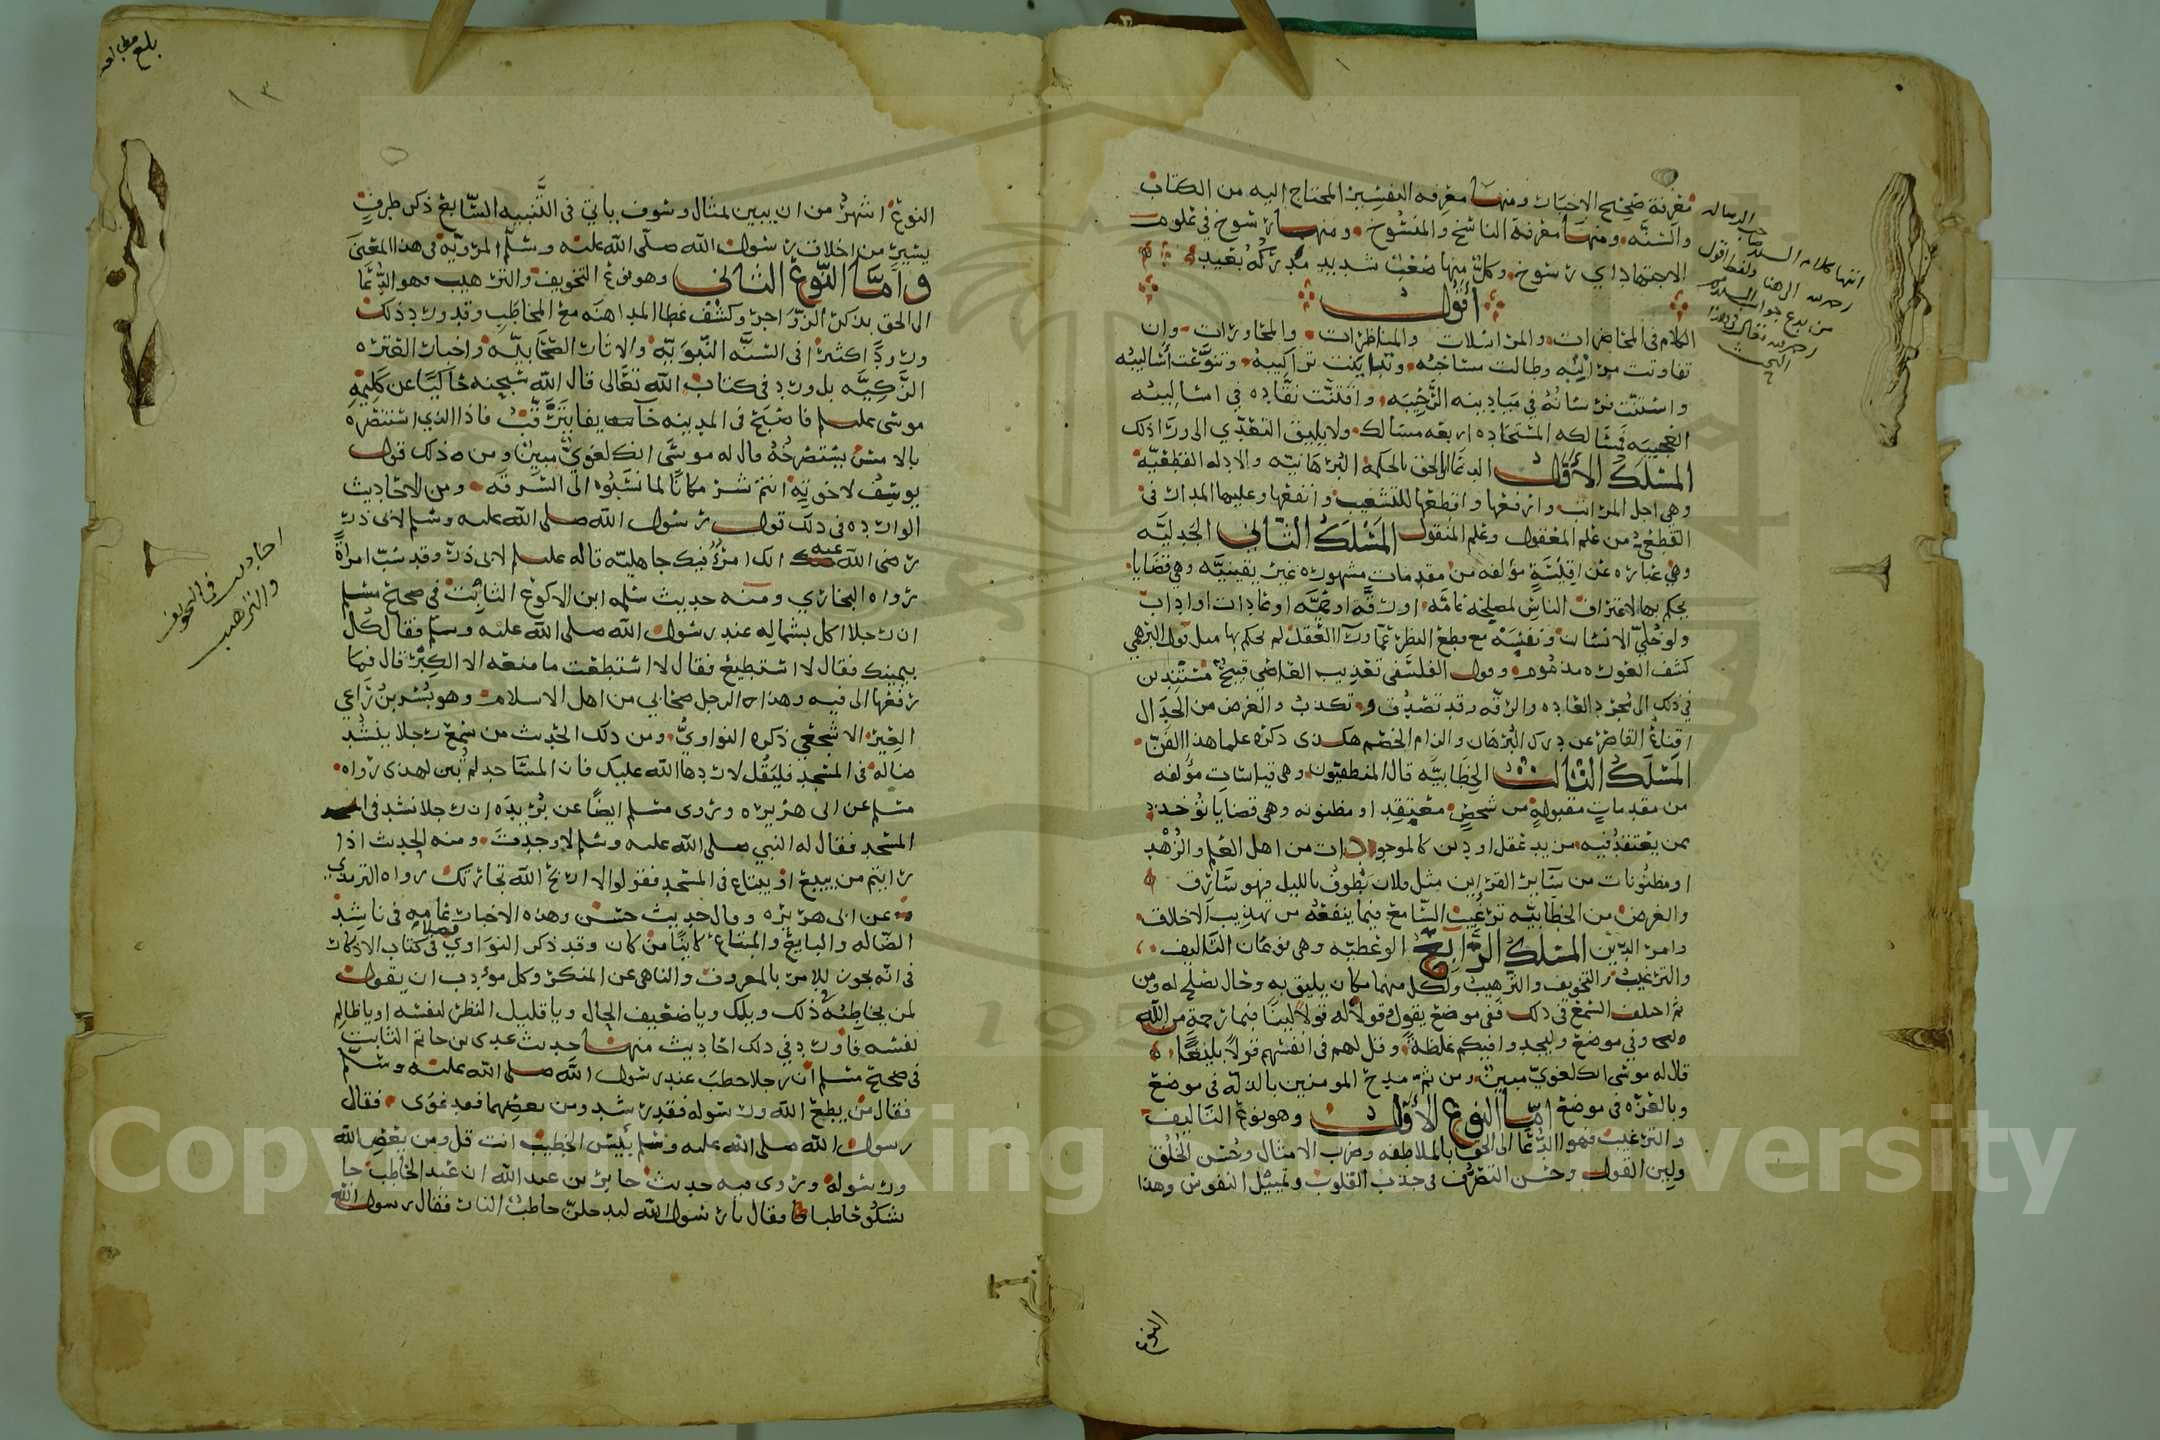 معرفة صحيح الاخبار ومنها معرفه التفسير المحتاج اليه من الكتاب
والسنه ومنها معرفة الناسخ والمنسوخ ومنها رسوخ في علوم
الاجتهاد اي رسوخ وكل منها صعب شديد مدركه بعيد
اقول
الكلام في المحاضرات والمراسلات والمناظرات والمحاورات وان
تفاوتت مراتبه وطالت مساحته وتباينت تراكيبه وتنوعت أساليبه
واستنت فرسانه في ميادينه الرحيبه وافتنت نقاده في اساليبه
العجيبه فمسالكه المستجاده اربعه مسالك ولا يليق التعدي الى وراذلك
المسلك الاول الدعا الى الحق بالحكمة البرهانيه والادله القطعيه
وهي اجل المراتب وارفعها واقطعها للتشعيب وانفعها وعليها المدار في
القطعي من علم المعقول وعلم المنقول المسلك الثاني الجدليه
وهي عباره عن اقيسة مؤلفه من مقدمات مشهوره غير يقينيه وهي قضايا
يحكم بها لاعتراف الناس لمصلحه عامه او رقه او حميه او عادات او اداب
ولو خلي الانسان ونفسه مع قطع النظر عما ورآ العقل لم يحكم بها مثل قول البرهمي
كشف العوره مذموم وقول الفلسفي تعذيب العاصي قبيح مستندين
في ذلك الى مجرد العاده والرقه وقد تصدق وتكذب والغرض من الجدال
اقناع القاصر عن درك البرهان والزام الخصم هكذى ذكره علما هذا الفن
المسلك الثالث الخطابيه قال المنطقيون وهي قياسات مؤلفه
من مقدمات مقبولة من شخص معتقد او مظنونه وهي قضايا تؤخذ
ممن يعتقد فيه مزيد عقل او دين كالموجودات من اهل العلم والزهد
او مظنونات من سآير القراين مثل فلان يطوف بالليل فهو سارق
والغرض من الخطابيه ترغيب السامع فيما ينفعه من تهذيب الاخلاق
وامر الدين المسلك الرابع الوعظيه وهي نوعان التاليف
والترغيب والتخويف والترهيب ولكل منهما مكان يليق به وحال تصلح له ومن
ثم اختلف السمع في ذلك ففي موضع يقول فقولا له قولا لينا فبما رحمة من الله
وفي موضع وليجدوا فيكم غلظة وقل لهم في انفسهم قولا بليغا
قال له موسى انك لغوي مبين ومن ثم مدح المومنين بالذله في موضع
وبالعزه في موضع اما النوع الاول وهو نوع التاليف
والترغيب فهو الدعا الى الحق بالملاطفه وضرب الامثال وحسن الخلق
ولين القول وحسن التصرف في جذب القلوب وتمييل النفوس وهذا
النوع
انتها كلام السيد
رحمه الله
النوع اشهر من ان يبين بمثال وسوف ياتي في التنبيه السابع ذكر طرف
يسير من اخلاق رسول الله صلى الله عليه وسلم المرويه في هذا المعنى
واما النوع الثاني وهو نوع التخويف والترهيب فهو الدعا
الى الحق بذكر الزواجر وكشف غطا المداهنه مع المخاطب وقد ورد ذلك
ورودا كثيرا في السنه النبويه والاثار الصحابيه واخبار العتره
الزكيه بل ورد في كتاب الله تعالى قال الله سبحنه حاكيا عن كليمه
موسى عليه السلم فاصبح في المدينه خآيفا يترقب فاذا الذي استنصره
بالامس يستصرخه قال له موسى انك لغوي مبين ومن ذلك قول
يوسف لاخوته انتم شر مكانا لما نسبوه الى السرقه ومن الاحاديث
الوارده في ذلك قول رسول الله صلى الله عليه وسلم لابي ذر
رضي الله عنه انك امرؤ فيك جاهليه قاله عليه السلم لابي ذر وقد سب امراة
رواه البخاري ومنه حديث سلمه ابن الاكوع الثابت في صحيح مسلم
ان رجلا اكل بشماله عند رسول الله صلى الله عليه وسلم فقال كل
بيمينك فقال لا استطيع فقال لا استطعت ما منعه الا الكبر قال فما
رفعها الى فيه وهذا الرجل صحابي من اهل الاسلام وهو بسر بن راعي
العير الاشجعي ذكره النواوي ومن ذلك الحديث من سمع رجلا ينشد
ضاله في المسجد فليقل لا ردها الله عليك فان المساجد لم تبن لهذى رواه
مسلم عن ابى هريره وروى مسلم ايضا عن بريده ان رجلا نشد في
المسجد فقال له النبي صلى الله عليه وسلم لا وجدت ومنه الحديث اذا
رايتم من يبيع او يبتاع في المسجد فقولوا لا اربح الله تجارتك رواه الترمذي
عن ابى هريره وقال حديث حسن وهذه الاخبار عامه في ناشد
الضاله والبايع والمبتاع كاينا من كان وقد ذكر النواوي فصلا في كتاب الاذكار
في انه يجوز للامر بالمعروف والناهى عن المنكر وكل مؤدب ان يقول
لمن يخاطبه في ذلك ويلك ويا ضعيف الحال ويا قليل النظر لنفسه او يا ظالم
نفسه فاورد في ذلك احاديث منها حديث عدى بن حاتم الثابت
في صحيح مسلم ان رجلا خطب عند رسول الله صلى الله عليه وسلم
فقال من يطع الله ورسوله فقد رشد ومن يعصهما فقد غوى فقال
رسول الله صلى الله عليه وسلم بئس الخطيب انت قل ومن يعص الله
ورسوله وروى فيه حديث جابر بن عبد الله ان عبد الحاطب جا
يشكو حاطبا فقال يا رسول الله ليدخلن حاطب النار فقال رسول الله
احاديث في التخويف
والترهيب
بلغ مطالعه
Copyright © King Saud University
1957